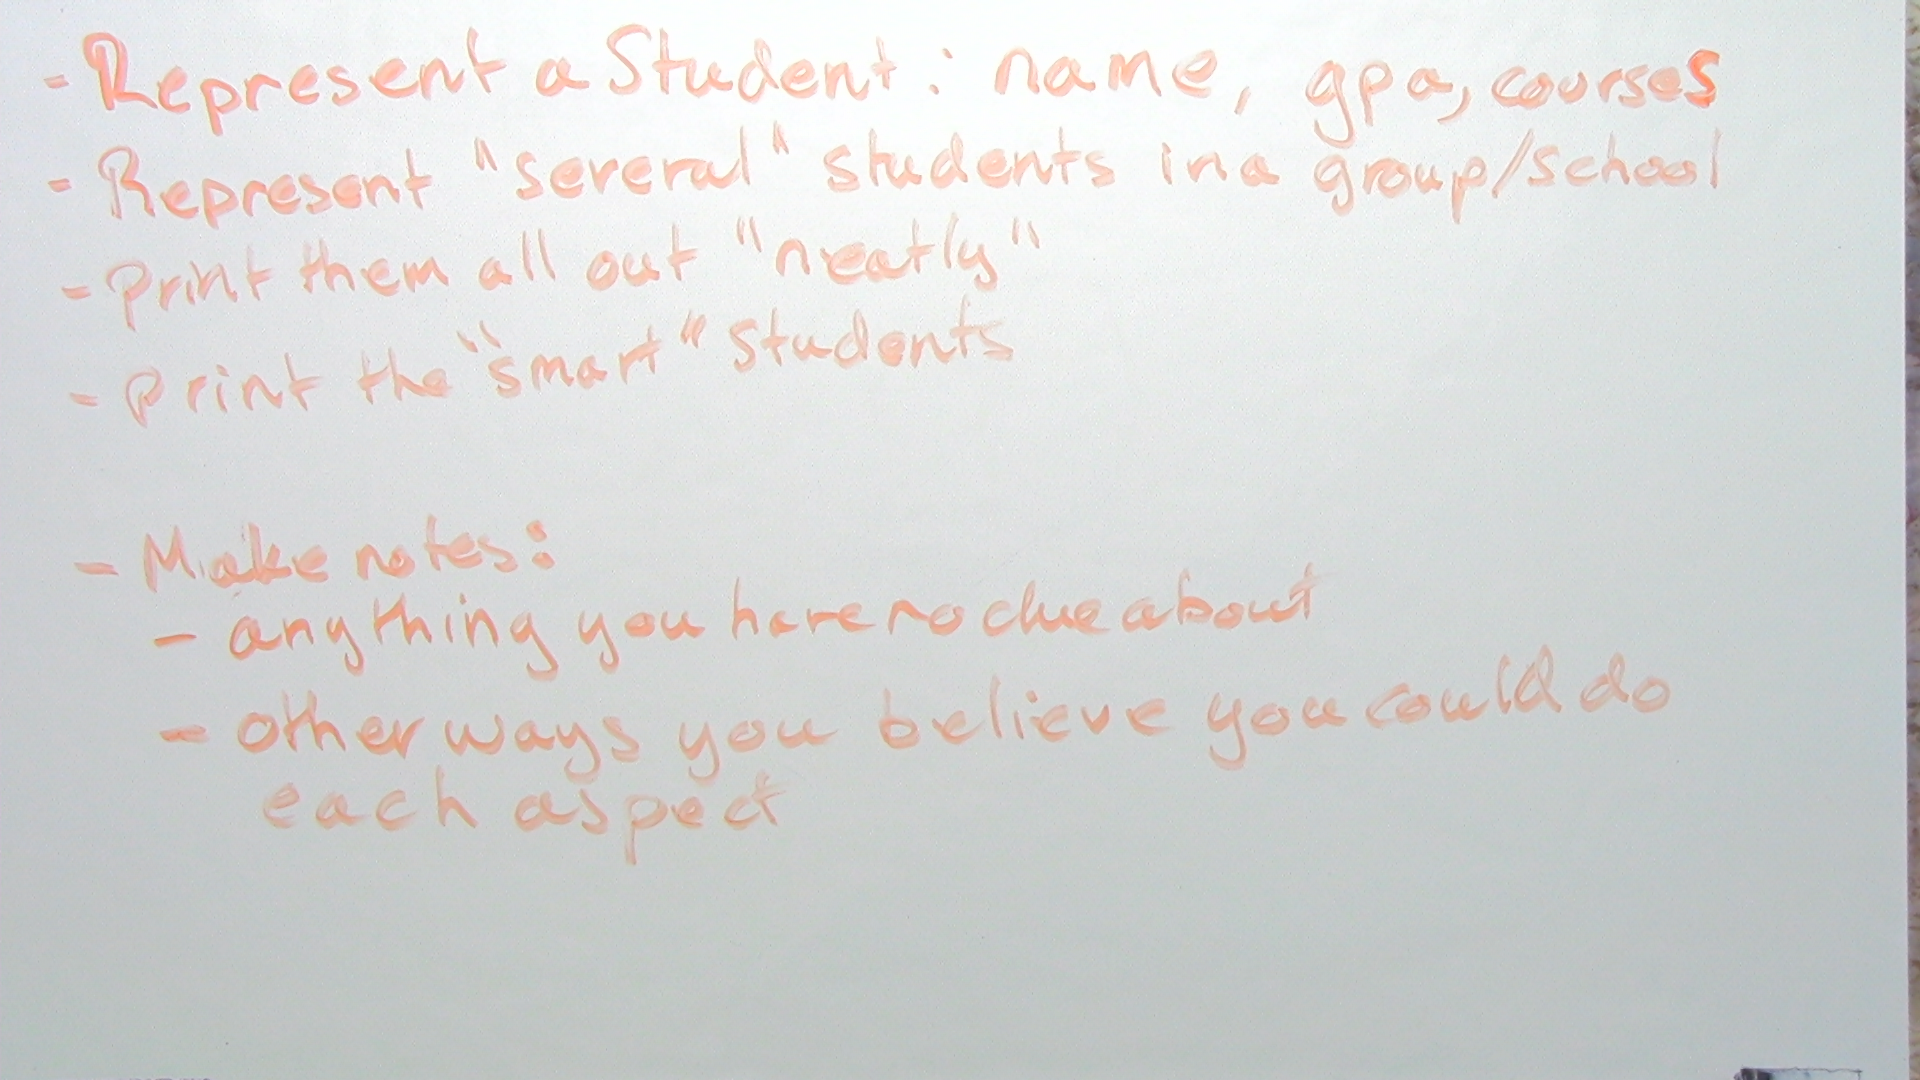 - Represent a Student: name, gpa, courses
- Represent "several" students in a group/school
- Print them all out "neatly"
- Print the "smart" students
- Make notes:
- anything you have no clue about
- other ways you believe you could do
each aspect